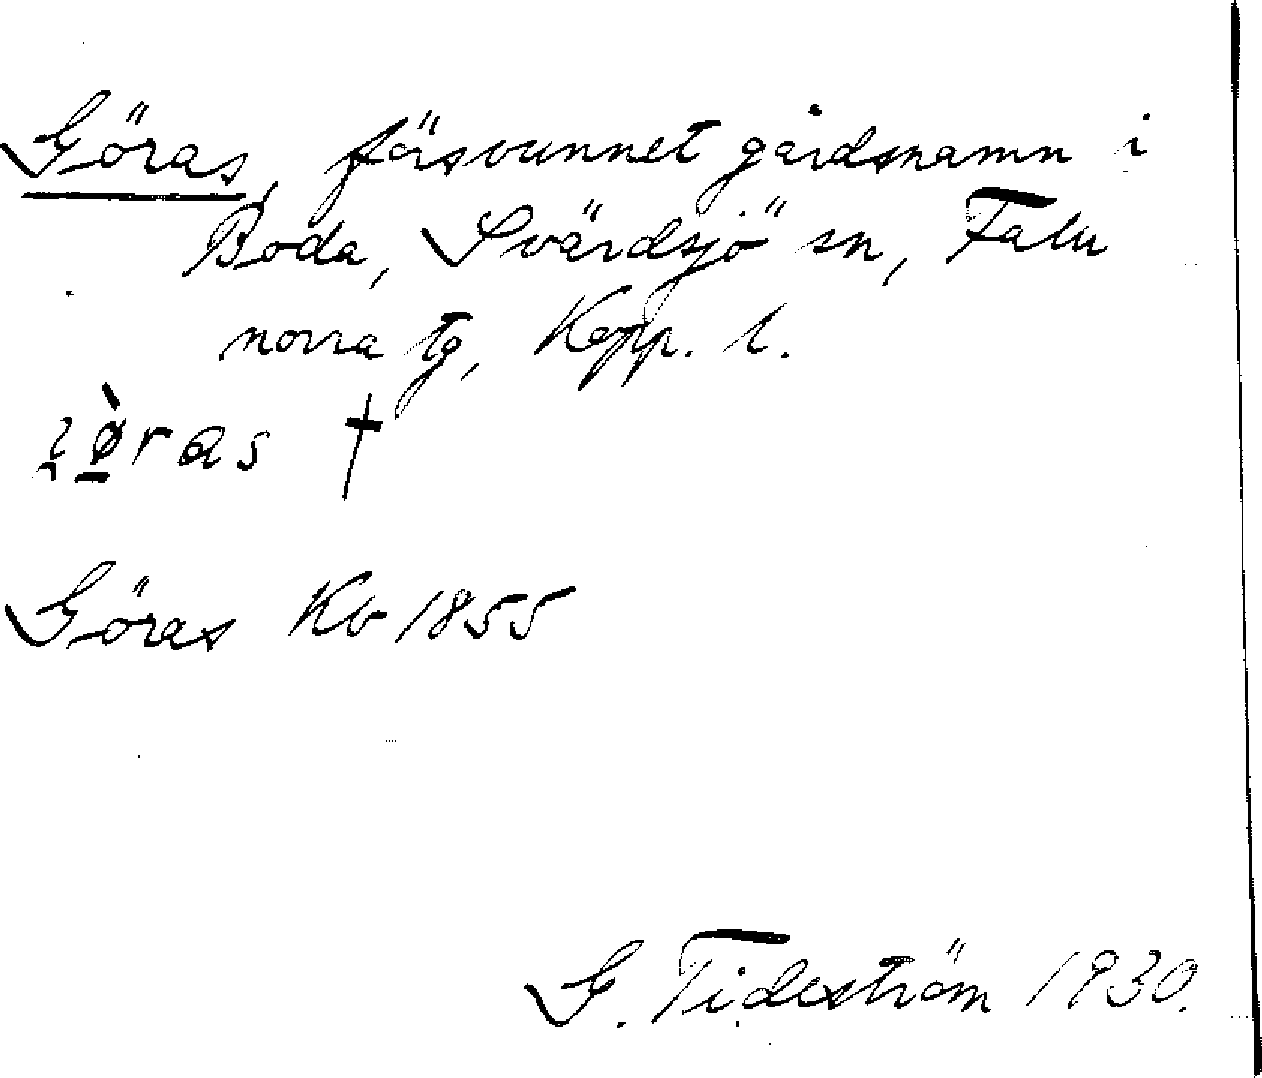 Göras, försvunnet gårdsnamn i
Boda, Svärdsjö sn, Falu
norra tg, Kopp. l.
†
Göras Kb 1855
G. Tideström 1930.